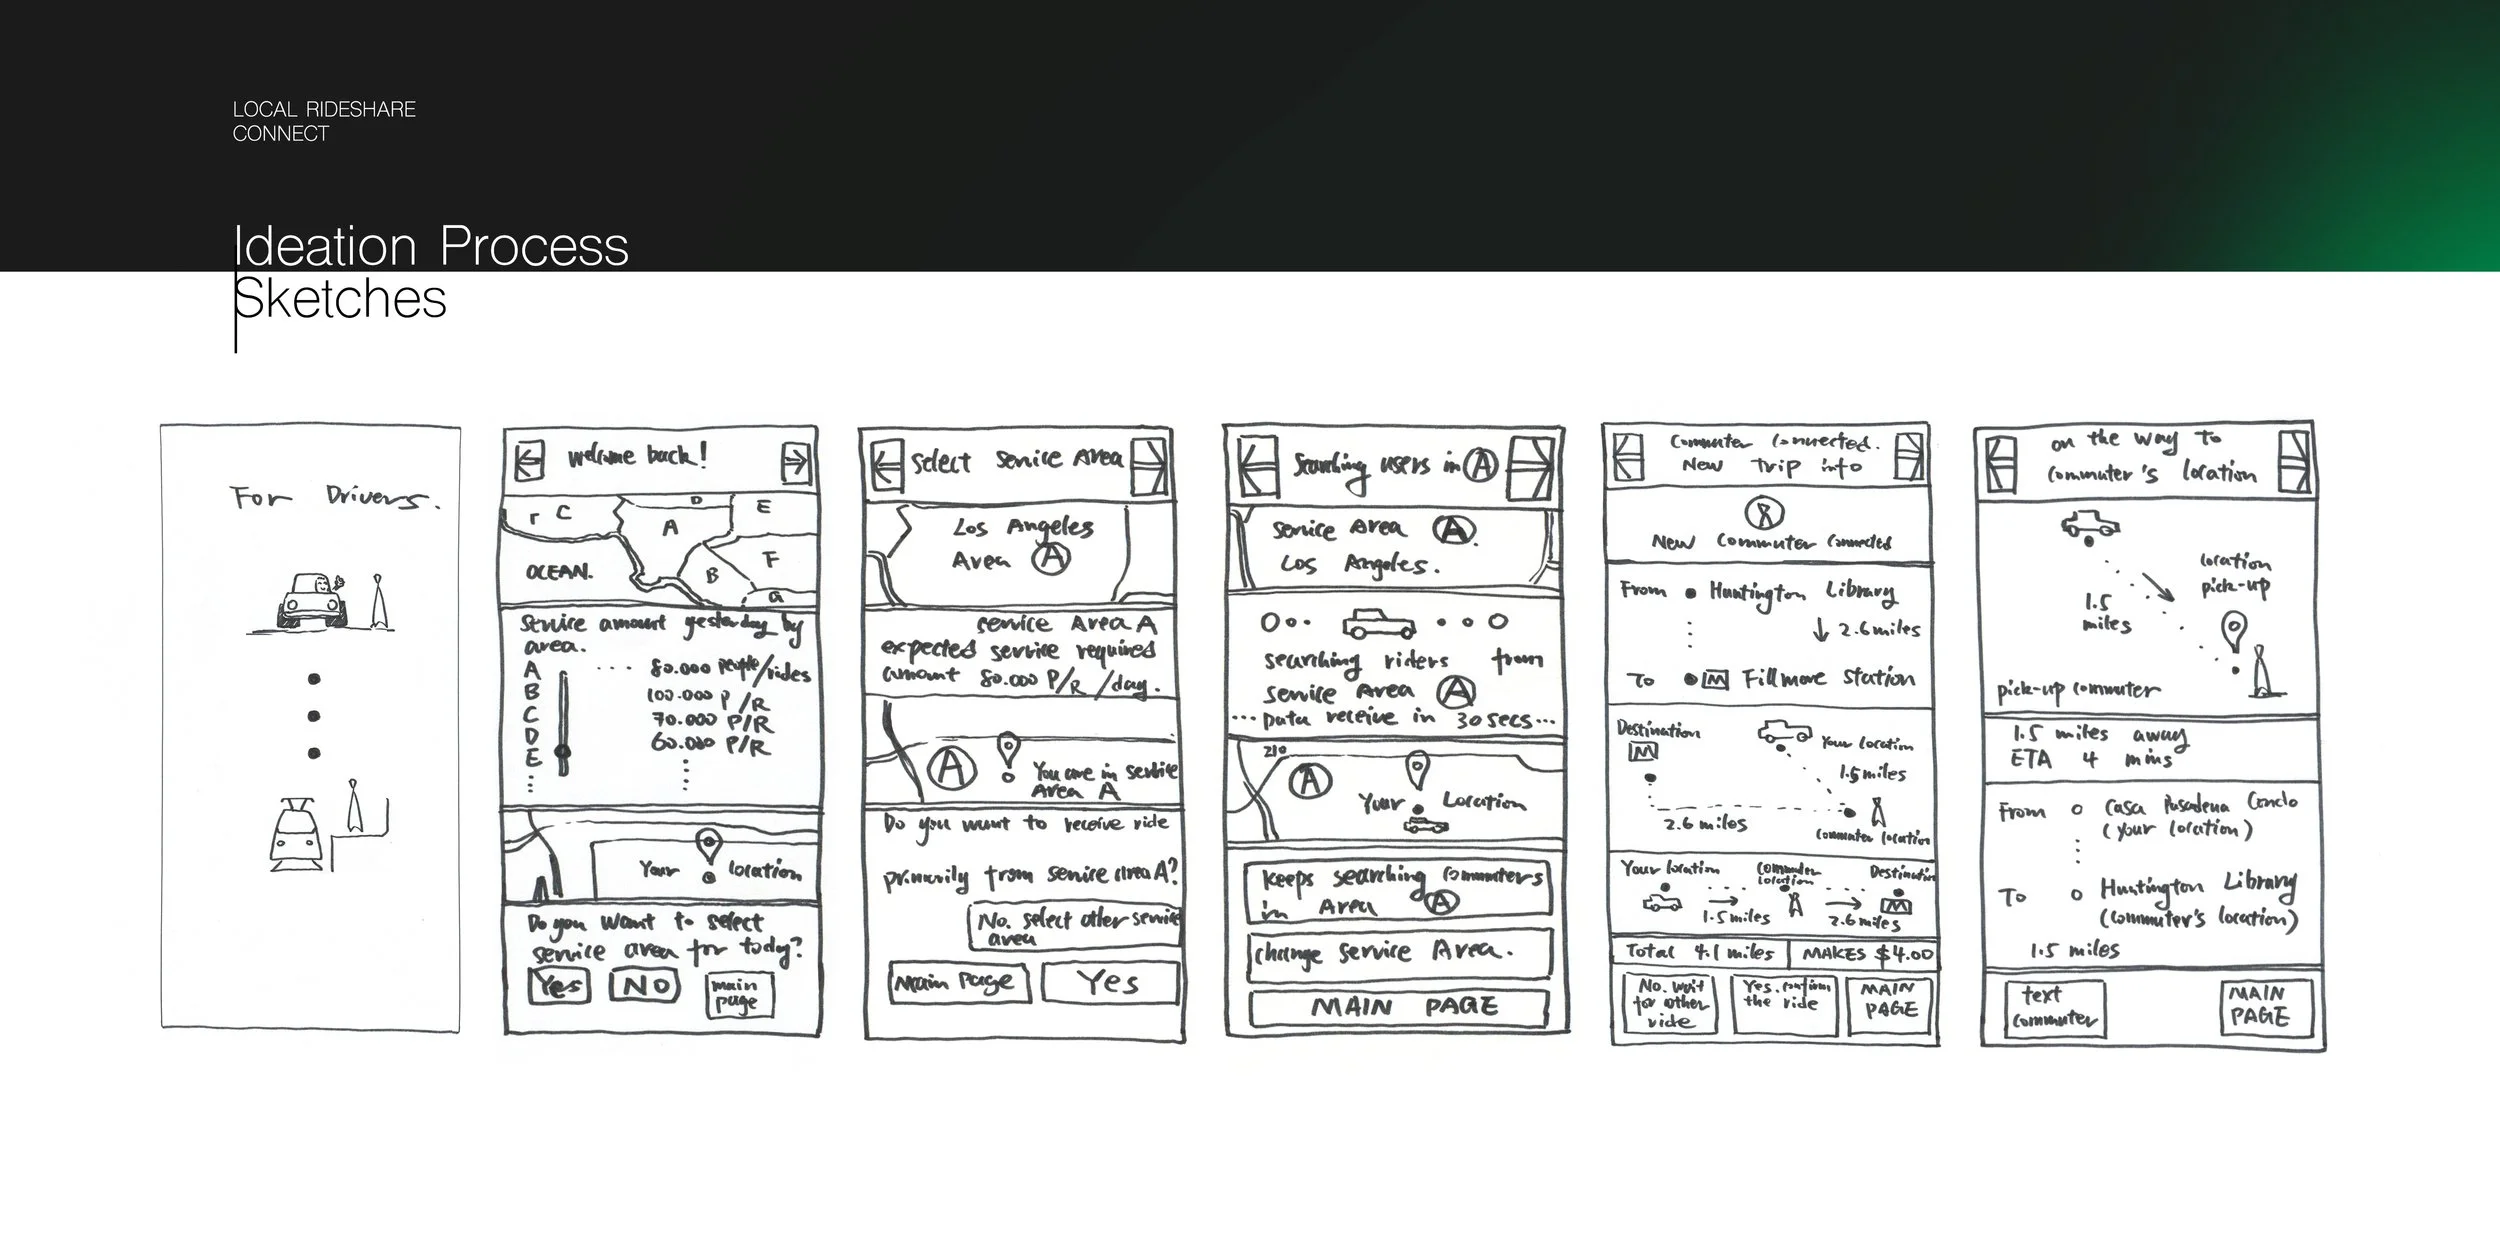 LOCAL RIDESHARE
CONNECT
Ideation Process
Sketches
For Drivers.
welcome back!
C
D
E
A
F
B
G
OCEAN.
Service amount yesterday by
area.
A .... 80.000 people/rides
B 100.000 P/R
C 70.000 P/R
D 60.000 P/R
E
Your location
Do you want to select
service area for today?
Yes
NO
main
page
Select Service Area
Los Angeles
Area A
service Area A
expected service required
amount 80.000 P/R /day.
A
You are in service
Area A
Do you want to receive ride
primarily from service area A?
No. select other service
area
Main Page
Yes
Searching users in A
Service Area A.
Los Angeles.
searching riders from
service Area A
...Data receive in 30 secs...
210
A
Your Location
keeps searching commuters
in Area A
change service Area.
MAIN PAGE
Commuter Connected.
New Trip info
New Commuter Connected
From Huntington Library
↓ 2.6 miles
To M Fillmore Station
Destination
M
Your location
1.5 miles
2.6 miles
Commuter location
Your location
Commuter
location
Destination
1.5 miles
2.6 miles
M
Total 4.1 miles
MAKES $4.00
No. wait
for other
ride
Yes. confirm
the ride
MAIN
PAGE
on the way to
commuter's location
location
pick-up
1.5
miles
pick-up commuter
1.5 miles away
ETA 4 mins
From Casa Pasadena Condo
(your location)
To Huntington Library
(commuter's location)
1.5 miles
text
commuter
MAIN
PAGE